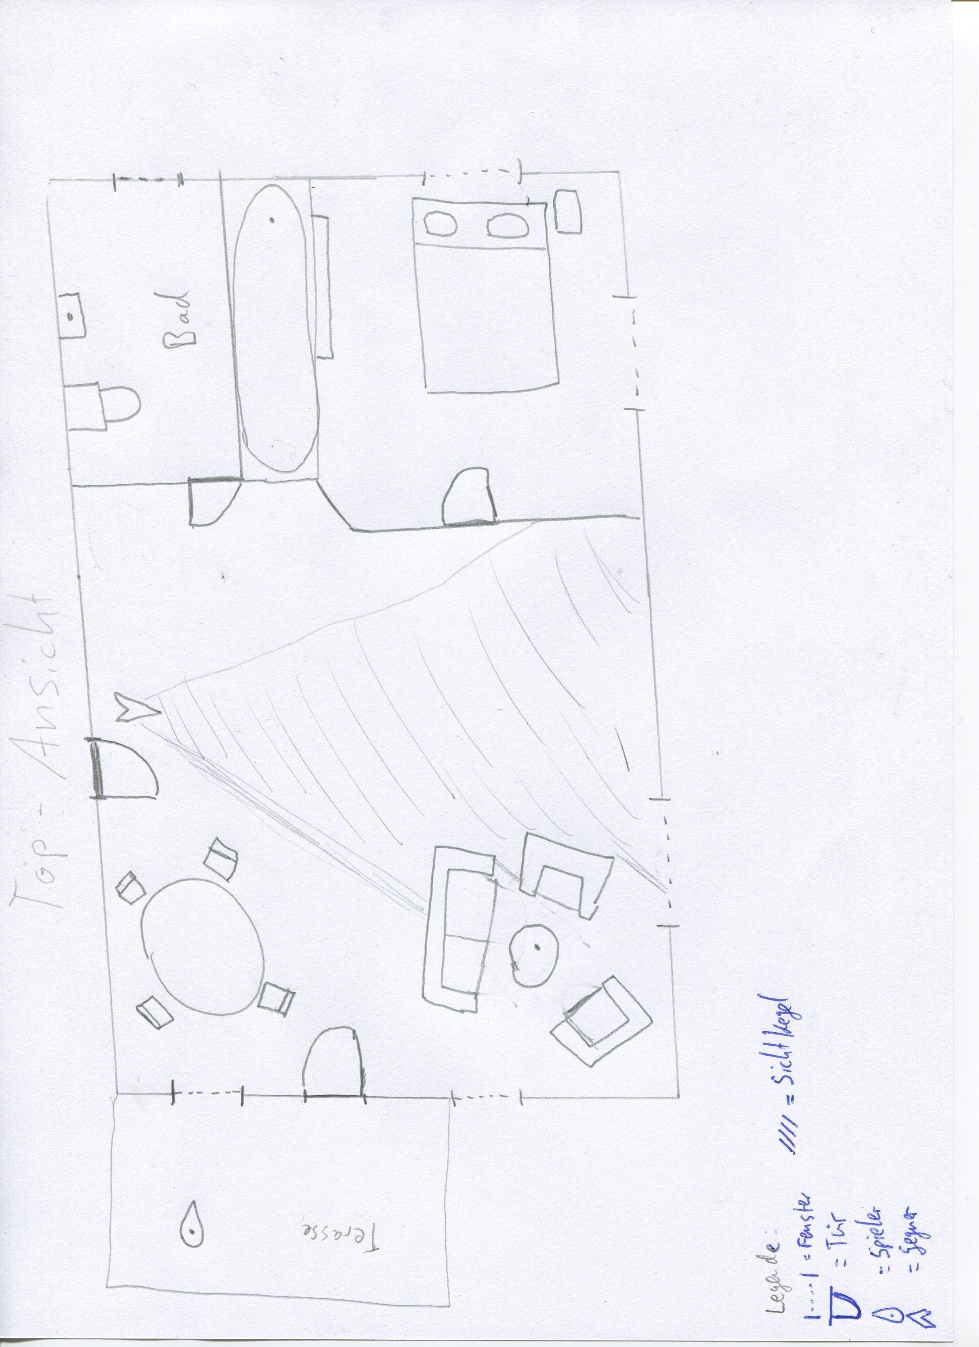 Top-Ansicht
Bad
Terasse
Legende:
= Fenster
= Tür
= Spieler
= Gegner
//// = Sichtkegel